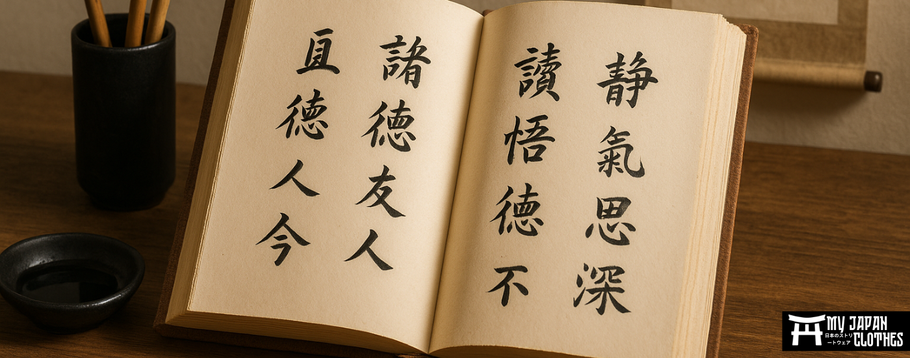 静氣思深
讀悟徳不
諸徳友人
徳人今
MY JAPAN
CLOTHES
日本のストリ
ートウェア